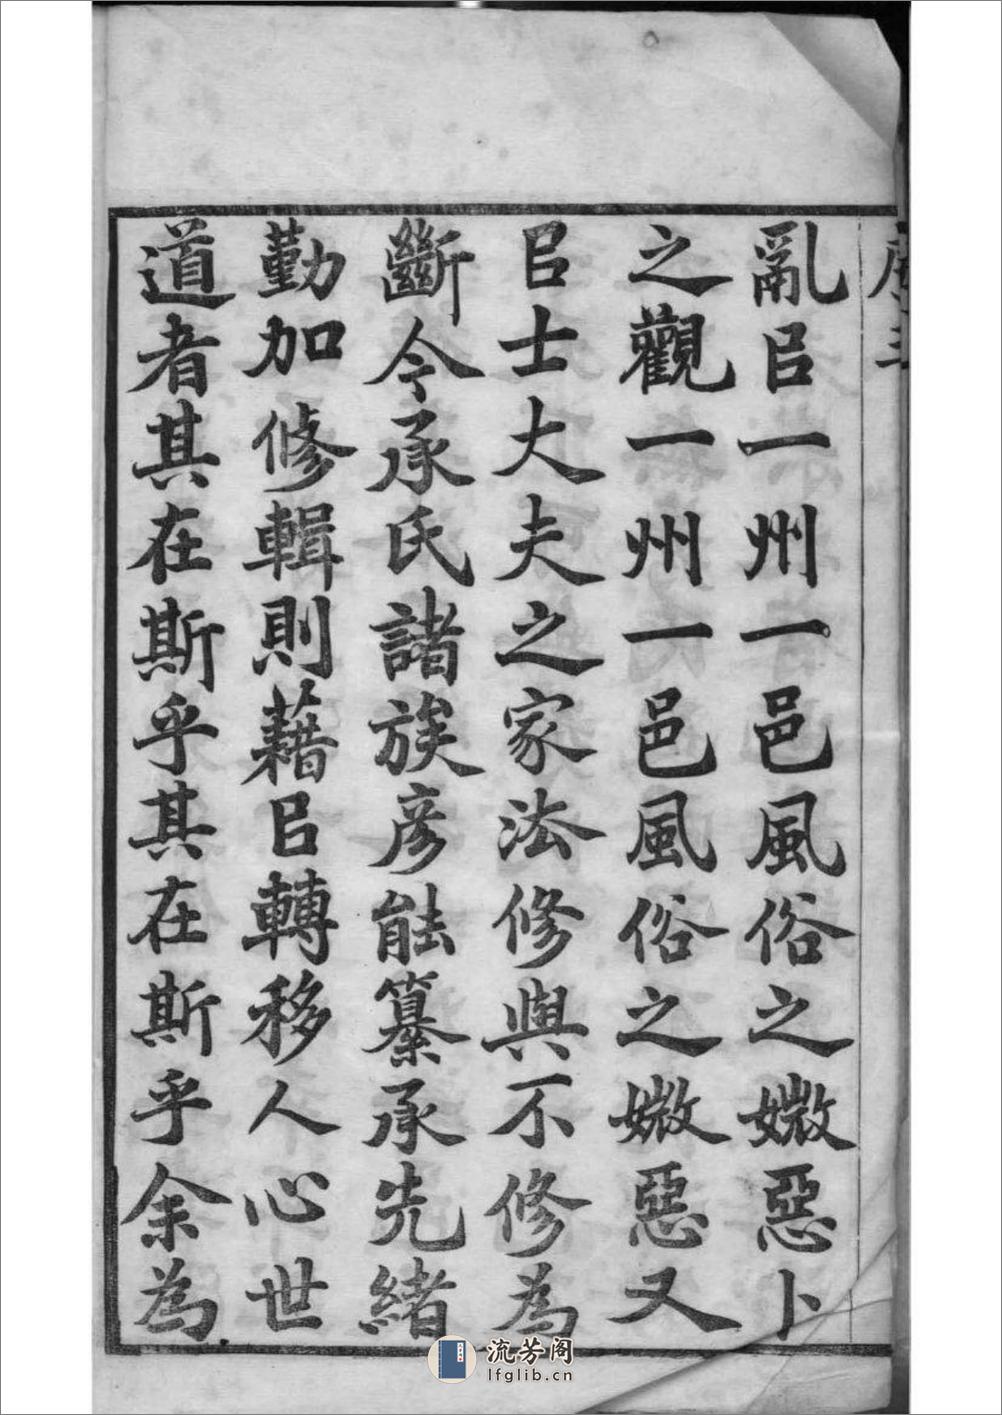 亂㠯一州一邑風俗之媺惡卜
之觀一州一邑風俗之媺惡又
㠯士大夫之家法修與不修為
斷今承氏諸族彦能纂承先緒
勤加修輯則藉㠯轉移人心世
道者其在斯乎其在斯乎余為
流芳阁
lfglib.cn